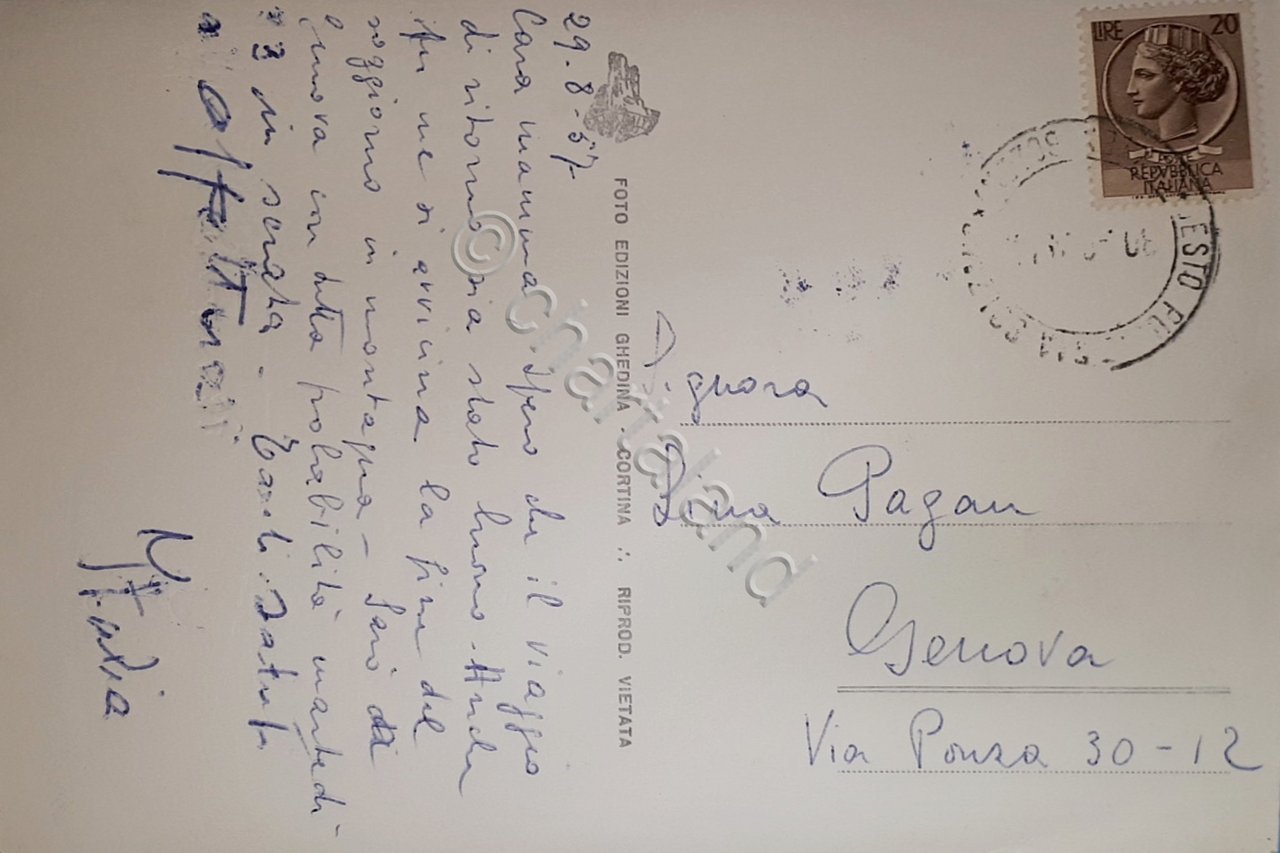 29.8.57
Cara mamma spero che il viaggio
di ritorno sia stato buono. Anche
per me si avvicina la fine del
soggiorno in montagna - Sarò da
Genova con tutta probabilità martedì
3 in serata - Tanti saluti
affettuosi
FOTO EDIZIONI GHEDINA - CORTINA ∴ RIPROD. VIETATA
LIRE 20
POSTE
REPVBBLICA
ITALIANA
Signora
Dina Pagan
Genova
Via Ponza 30-12
© chartaland